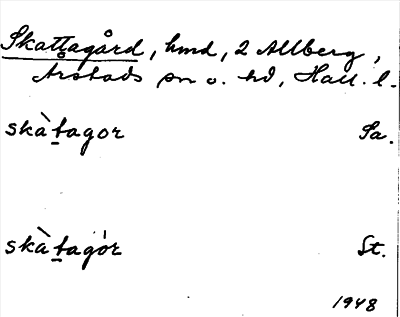 Skattagård, hmd, 2 Allberg,
Årstads sn o. hd, Hall. l.
skàtagor Sa.
skàtagór St.
1948